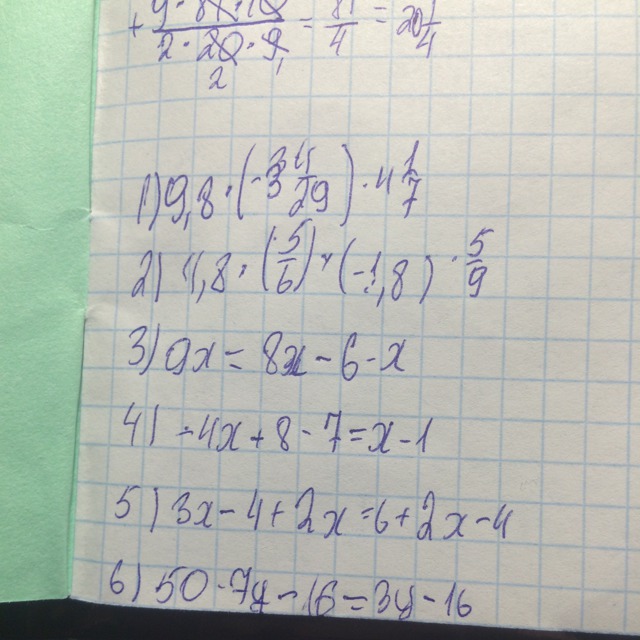 + 9·81·10 / 2·20·9 = 81/4 = 20 1/4
2 1
1) 9,8·(-3 4/29)·4 1/7
2) 4,8·(-5/6)·(-1,8)·5/9
3) 9x = 8x - 6 - x
4) -4x + 8 - 7 = x - 1
5) 3x - 4 + 2x = 6 + 2x - 4
6) 50 - 7y - 16 = 3y - 16